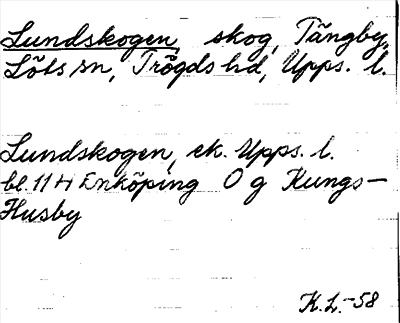 Lundskogen, skog, Tängby,
Löts sn, Trögds hd, Upps. l.
Lundskogen, ek. Upps. l.
bl. 11 H Enköping O g Kungs-
Husby
K. L. -58